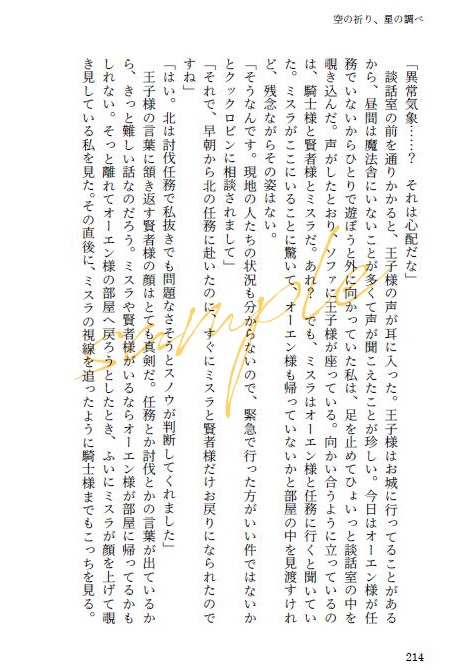 空の祈り、星の調べ
「異常気象……？　それは心配だな」
　談話室の前を通りかかると、王子様の声が耳に入った。王子様はお城に行ってることがある
から、昼間は魔法舎にいないことが多くて声が聞こえたことが珍しい。今日はオーエン様が任
務でいないからひとりで遊ぼうと外に向かっていた私は、足を止めてひょいっと談話室の中を
覗き込んだ。声がしたとおり、ソファに王子様が座っている。向かい合うように立っているの
は、騎士様と賢者様とミスラだ。あれ？　でも、ミスラはオーエン様と任務に行くと聞いてい
た。ミスラがここにいることに驚いて、オーエン様も帰っていないかと部屋の中を見渡すけれ
ど、残念ながらその姿はない。
「そうなんです。現地の人たちの状況も分からないので、緊急で行った方がいい件ではないか
とクックロビンに相談されまして」
「それで、早朝から北の任務に赴いたのに、すぐにミスラと賢者様だけお戻りになられたので
すね」
「はい。北は討伐任務で私抜きでも問題なさそうとスノウが判断してくれました」
　王子様の言葉に頷き返す賢者様の顔はとても真剣だ。任務とか討伐とかの言葉が出ているか
ら、きっと難しい話なのだろう。ミスラや賢者様がいるならオーエン様が部屋に帰ってるかも
しれない。そっと離れてオーエン様の部屋へ戻ろうとしたとき、ふいにミスラが顔を上げて覗
き見している私を見た。その直後に、ミスラの視線を追ったように騎士様までもこっちを見る。
sample
214